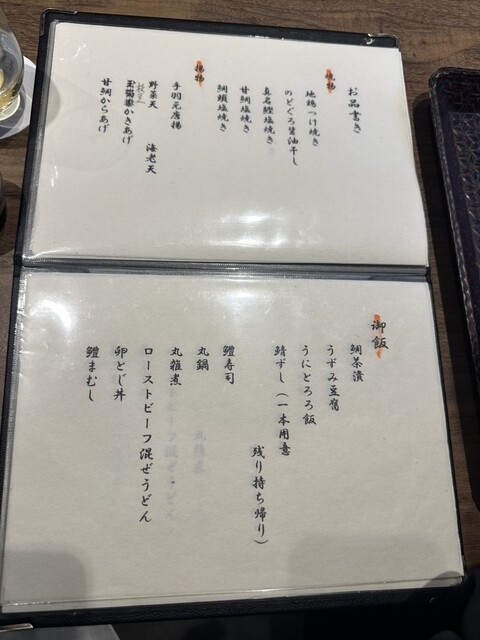 お品書き
焼物
地鶏つけ焼き
のどぐろ醤油干し
真名鰹塩焼き
甘鯛塩焼き
鯛頬塩焼き
揚物
手羽元唐揚
野菜天 海老天
かきあげ
甘鯛からあげ
御飯
鯛茶漬
うずみ豆腐
うにとろろ飯
鯖ずし（一本用意
残り持ち帰り）
鱧寿司
丸鍋
丸雑煮
ローストビーフ混ぜうどん
卵とじ丼
鱧まむし